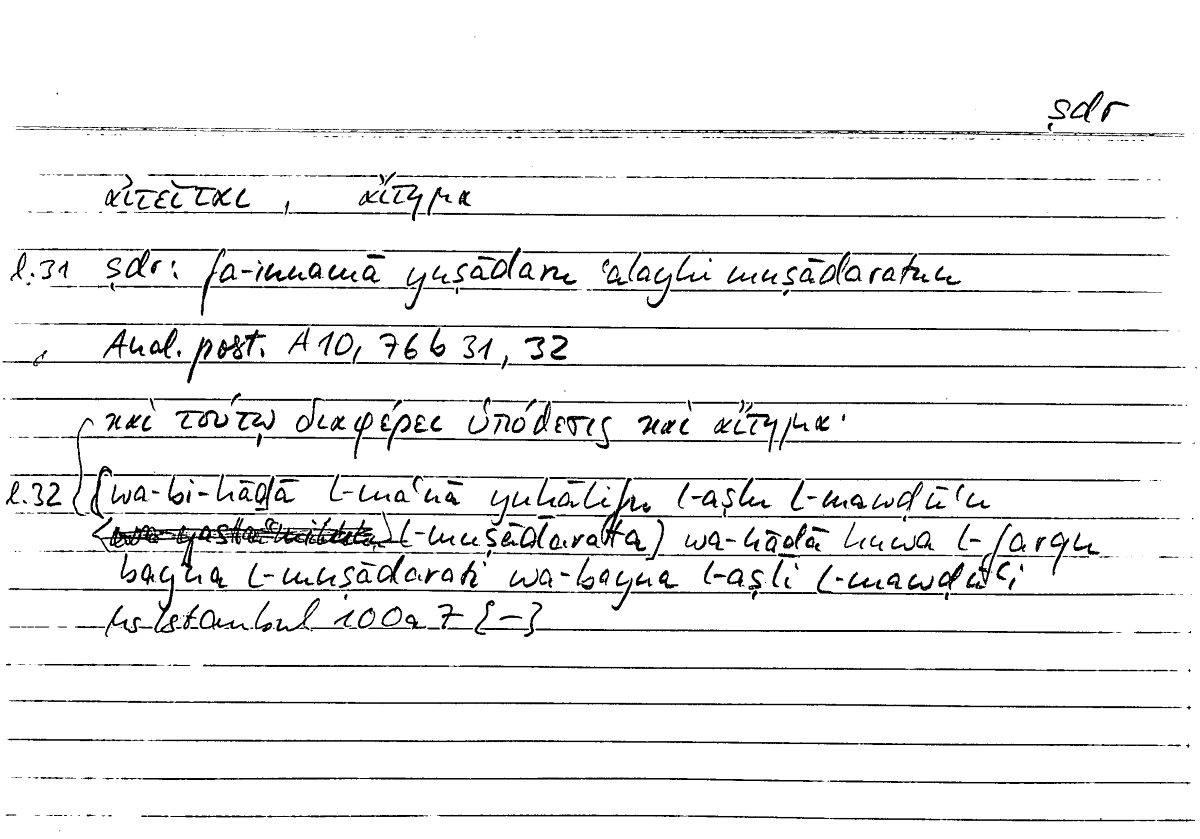 ṣdr
αἰτεῖται , αἴτημα
l.31 ṣdr: fa-innamā yuṣādaru ʿalayhi muṣādaratun
Anal. post. A 10, 76 b 31, 32
καὶ τούτῳ διαφέρει ὑπόθεσις καὶ αἴτημα·
l.32 (wa-bi-hāḏā l-maʿnā yuḫālifu l-aṣlu l-mawḍūʿu
l-muṣādarata) wa-hāḏā huwa l-farqu
bayna l-muṣādarati wa-bayna l-aṣli l-mawḍūʿi
Ms Istanbul 100a 7 [–]